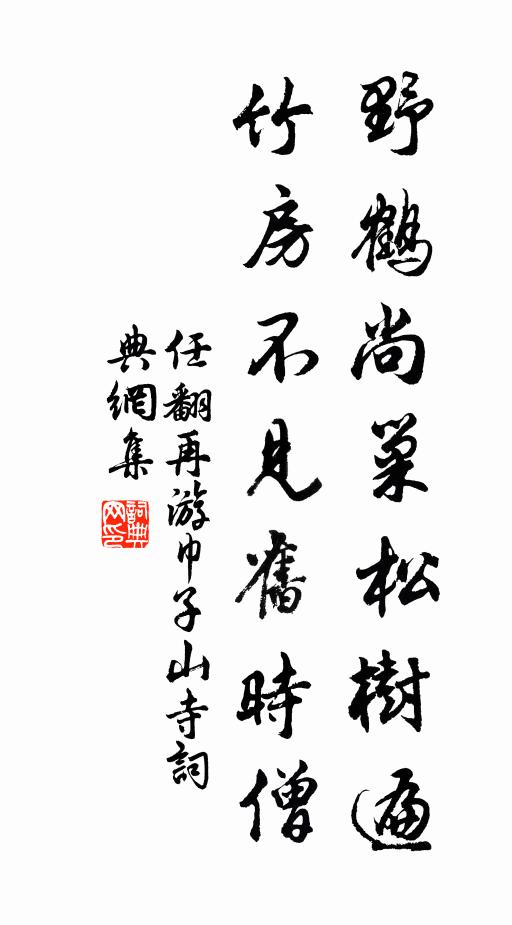 野鶴尚巢松樹遍
竹房不見舊時僧
任翻再游巾子山寺詞
典網集
詞典
网印